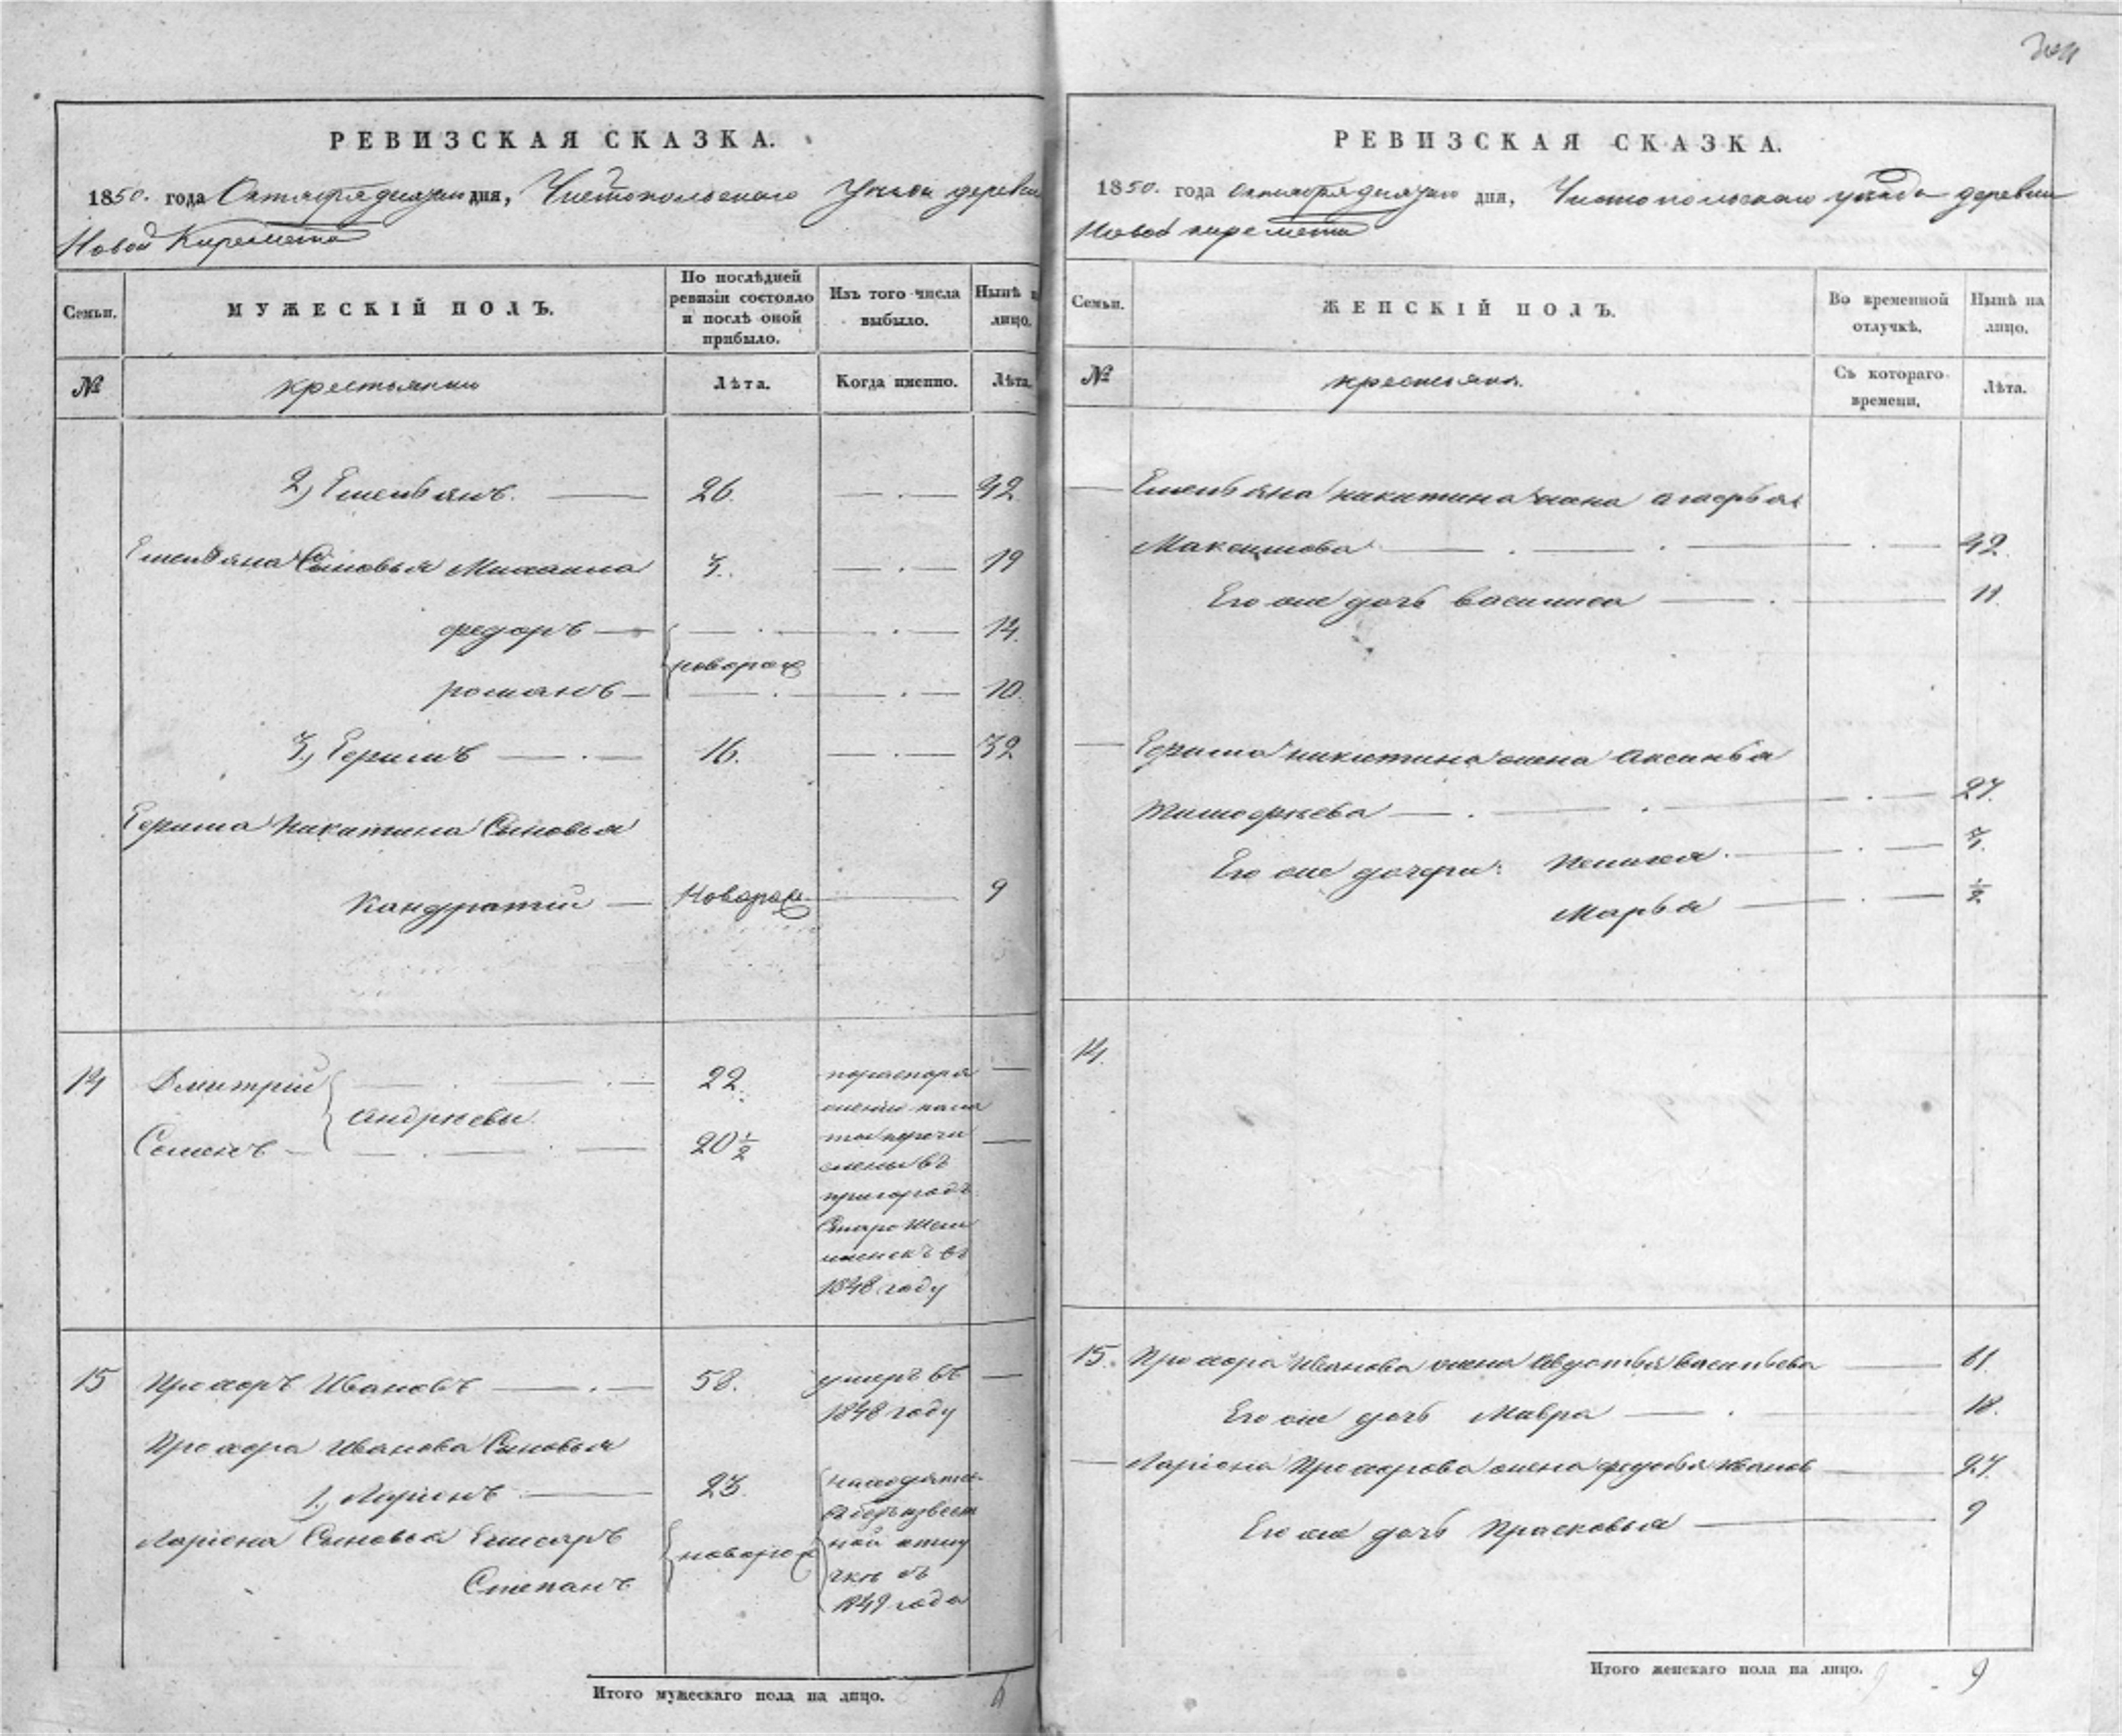 РЕВИЗСКАЯ СКАЗКА.
1850. года Октября дня, Чистопольскаго Уезда деревни
Новой Киремети
Семьи.
МУЖЕСКІЙ ПОЛЪ.
По послѣдней ревизіи состояло и послѣ оной прибыло.
Изъ того числа выбыло.
Нынѣ на лицо.
№
крестьяни
Лѣта.
Когда именно.
Лѣта.
2, Емельянъ. 26. 42.
Емельяна Сыновья Михаила 3. 19
федоръ 14.
новорож
романъ 10.
3, Ефимъ 16. 32
Ефима Никитина Сыновья
Кандратіи Новорож 9
14 Дмитрій 22. по распоря
андреевы жению пала
Семенъ 20 1/2 ты перечи
слены въ
пригородъ
Старо Шеш
минскъ въ
1848 году
15 Прохоръ Ивановъ 58. умеръ въ
1848 году
Прохора Иванова Сыновья
1, Ларіонъ 23. находятся
Ларіона Сыновья Елисаръ въ безъизвест
новорож ной отлу
Степанъ чке съ
1849 года
Итого мужескаго пола на лицо. 6
РЕВИЗСКАЯ СКАЗКА.
1850. года октября дня, Чистопольскаго уезда деревни
Новой киремети
Семьи.
ЖЕНСКІЙ ПОЛЪ.
Во временной отлучкѣ.
Нынѣ на лицо.
№
крестьяня.
Съ котораго времени.
Лѣта.
Емельяна никитина жена агафья
Максимова 42.
Его же дочь василиса 11.
Ефима никитина жена Аксинья
Тимофеева 27.
Его же дочери: 7.
Марья 1/2
14.
15. Прохора Иванова жена Авдотья васильева 61.
Его же дочь Мавра 18.
Ларіона Прохорова жена федосья Иванов 27.
Его же дочь Прасковья 9
Итого женскаго пола на лицо. 9